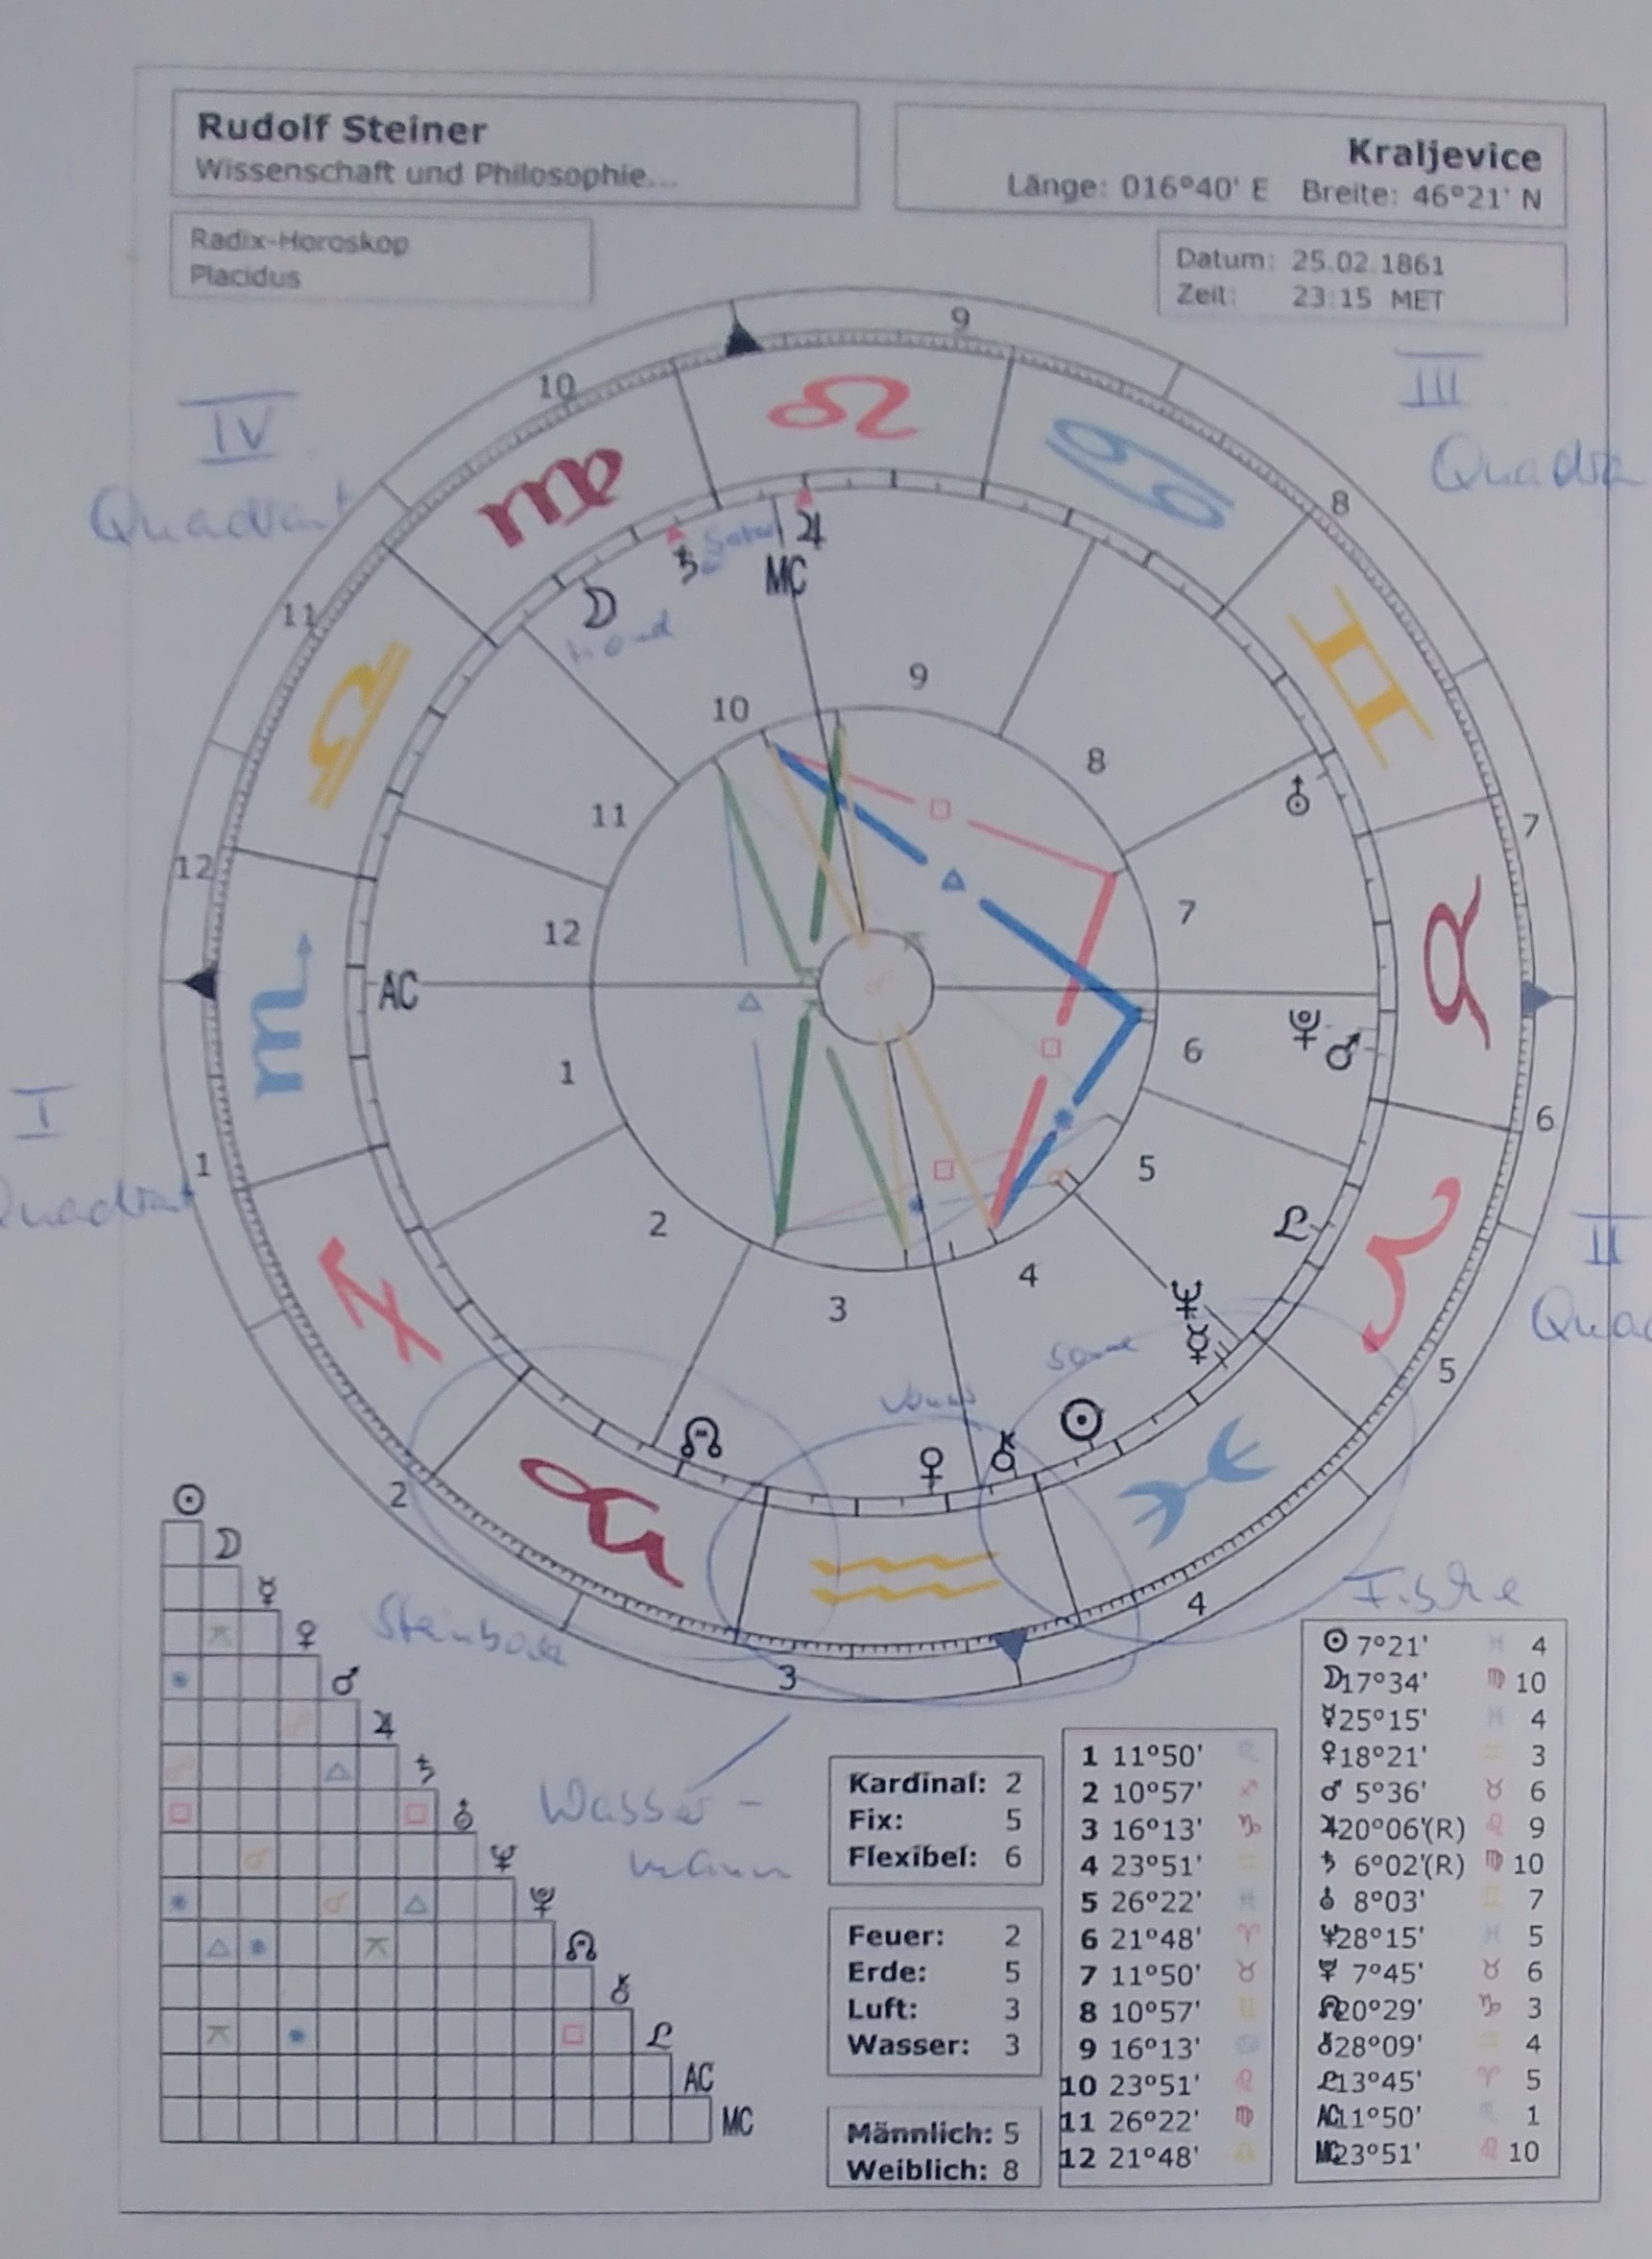 Rudolf Steiner
Wissenschaft und Philosophie...
Kraljevice
Länge: 016°40' E Breite: 46°21' N
Radix-Horoskop
Placidus
Datum: 25.02.1861
Zeit: 23:15 MET
9
III
IV
10
Quadrant
8
♌ ♋
♍
11
♄ ♃
MC
☽
Mond
♊
♎
9
10
8
11
7
12
12
7
♏
AC
♉
♇ ♂
6
1
I
6
1
5
2
II
4
3
♈
♆
☿
5
♐
Sonne
Venus
☊
☉
♀ ⚷
♓
2
♑
♒
4
3
Fische
Steinbock
Wasser-
mann
☉
☽
☿
♀
♂
♃
♄
⛢
♆
♇
☊
⚷
AC
MC
Kardinal: 2
Fix: 5
Flexibel: 6
Feuer: 2
Erde: 5
Luft: 3
Wasser: 3
Männlich: 5
Weiblich: 8
1 11°50' ♏
2 10°57' ♐
3 16°13' ♑
4 23°51' ♒
5 26°22' ♓
6 21°48' ♈
7 11°50' ♉
8 10°57' ♊
9 16°13' ♋
10 23°51' ♌
11 26°22' ♍
12 21°48' ♎
☉ 7°21' ♓ 4
☽17°34' ♍ 10
☿25°15' ♓ 4
♀18°21' ♒ 3
♂ 5°36' ♉ 6
♃20°06'(R) ♌ 9
♄ 6°02'(R) ♍ 10
⛢ 8°03' ♊ 7
♆28°15' ♓ 5
♇ 7°45' ♉ 6
☊20°29' ♑ 3
⚷28°09' ♒ 4
13°45' ♈ 5
AC11°50' ♏ 1
MC23°51' ♌ 10